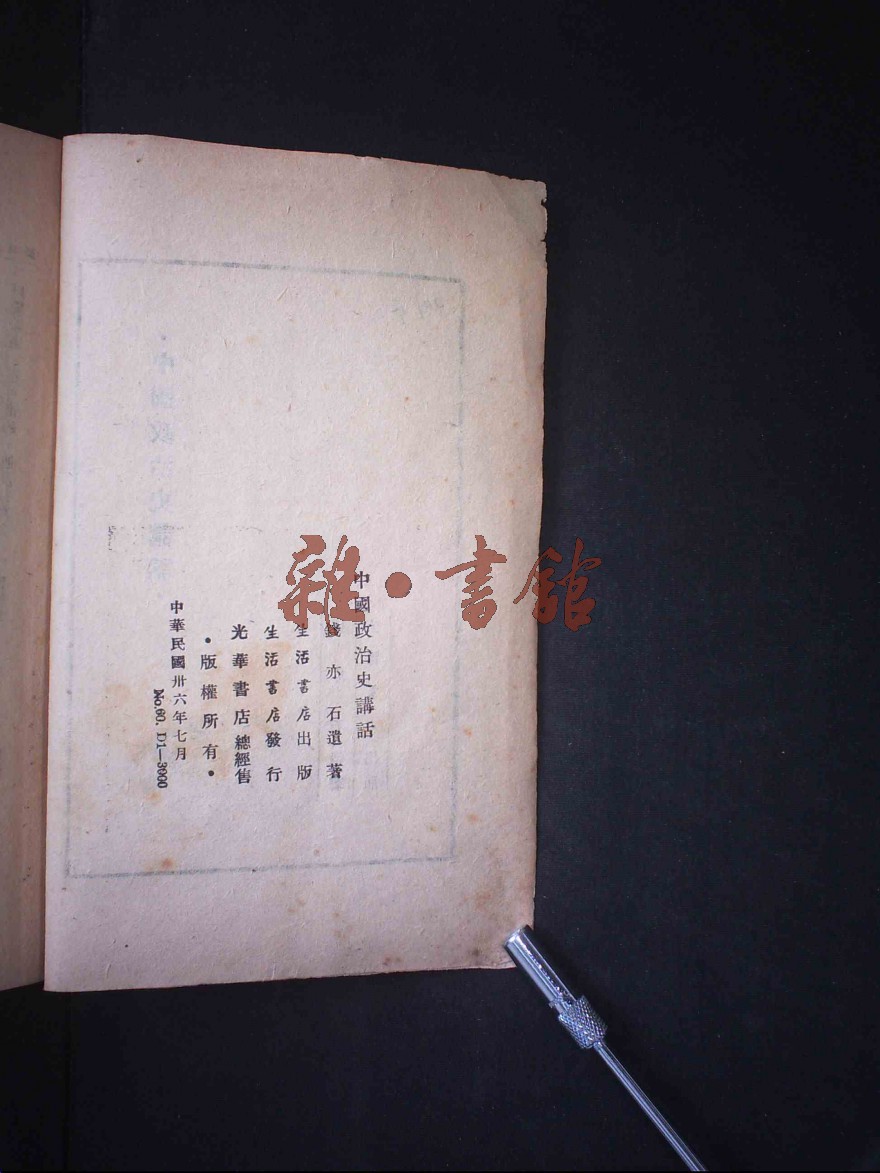 中國政治史講話
錢亦石遺著
生活書店出版
生活書店發行
光華書店總經售
•版權所有•
中華民國卅六年七月
No.60. D1—3000
雜•書館